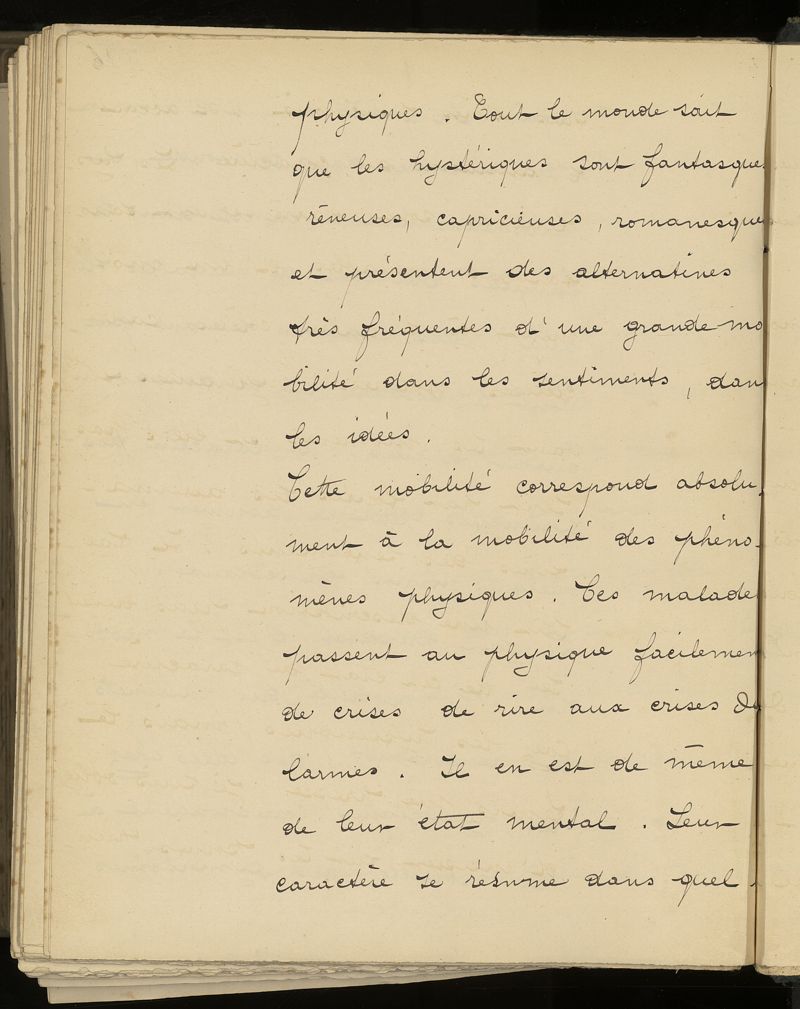 physiques. Tout le monde sait
que les hystériques sont fantasque
rêveuses, capricieuses, romanesque
et présentent des alternatives
très fréquentes d'une grande mo
bilité dans les sentiments, dan
les idées.
Cette mobilité correspond absolu-
ment à la mobilité des phéno-
mènes physiques. Ces malade
passent au physique facilemen
de crises de rire aux crises de
larmes. Il en est de même
de leur état mental. Leur
caractère se résume dans quel-